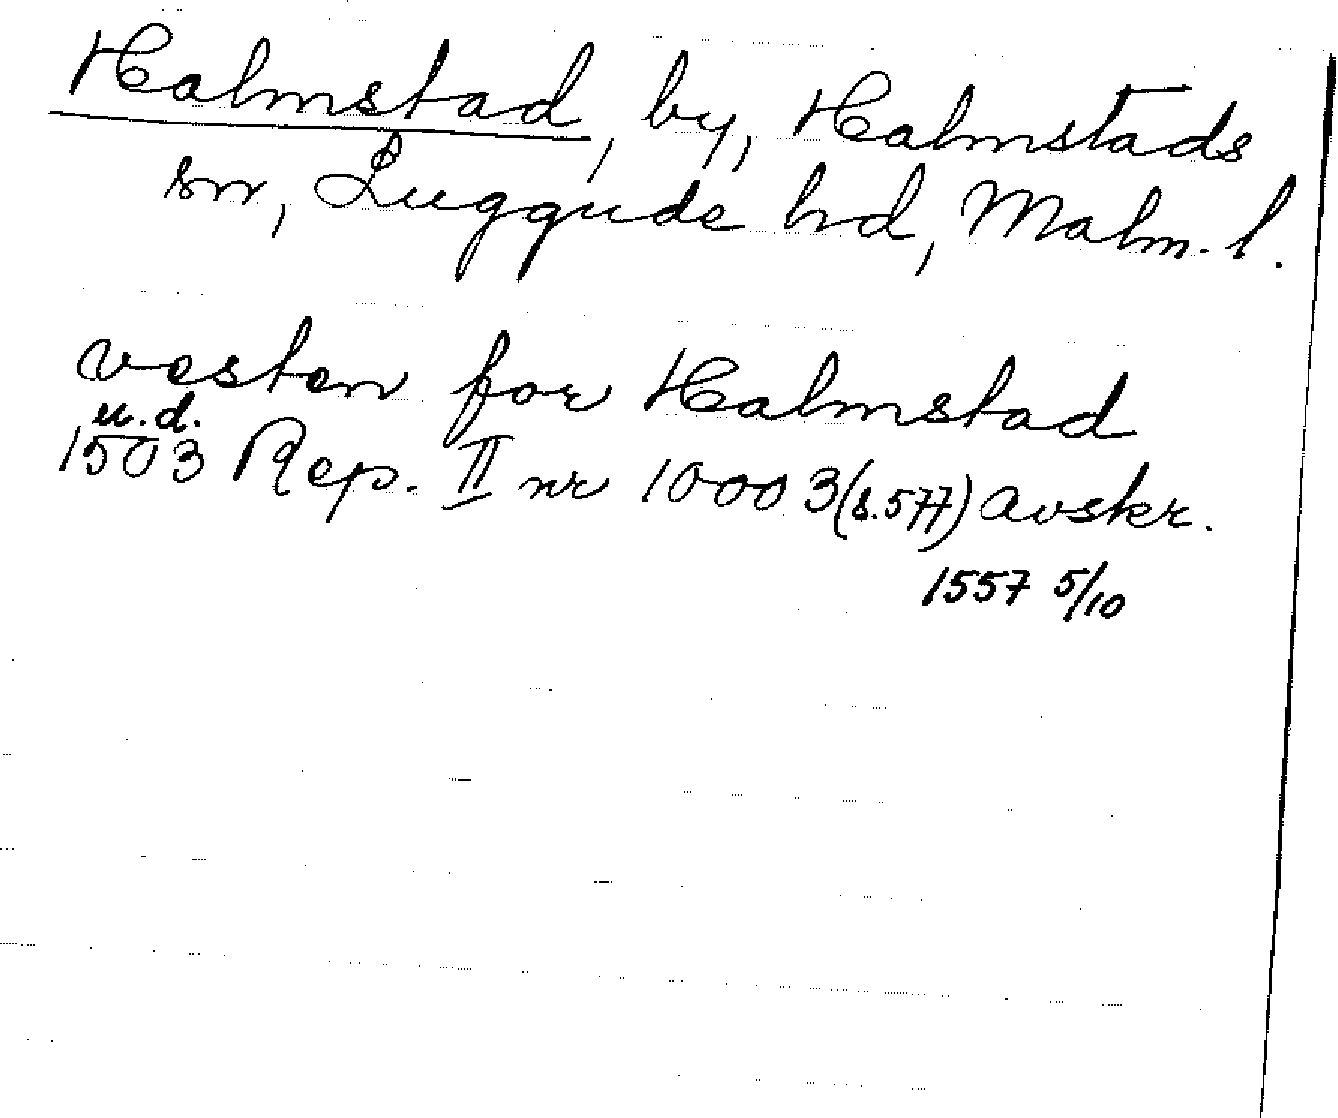 Halmstad, by, Halmstads
sn, Luggude hd, Malm. l.
vesten for Halmstad
u.d.
1503 Rep. II nr 10003 (s.577) avskr.
1557 5/10